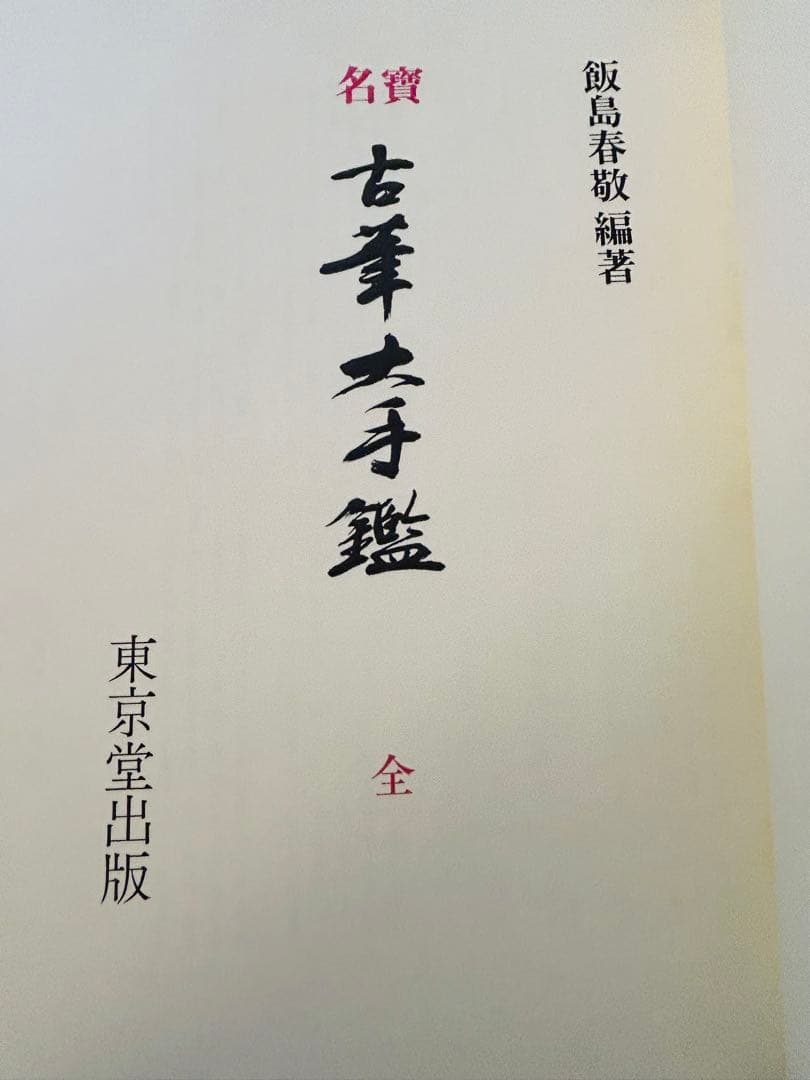 飯島春敬編著
名寶
古筆大手鑑
全
東京堂出版